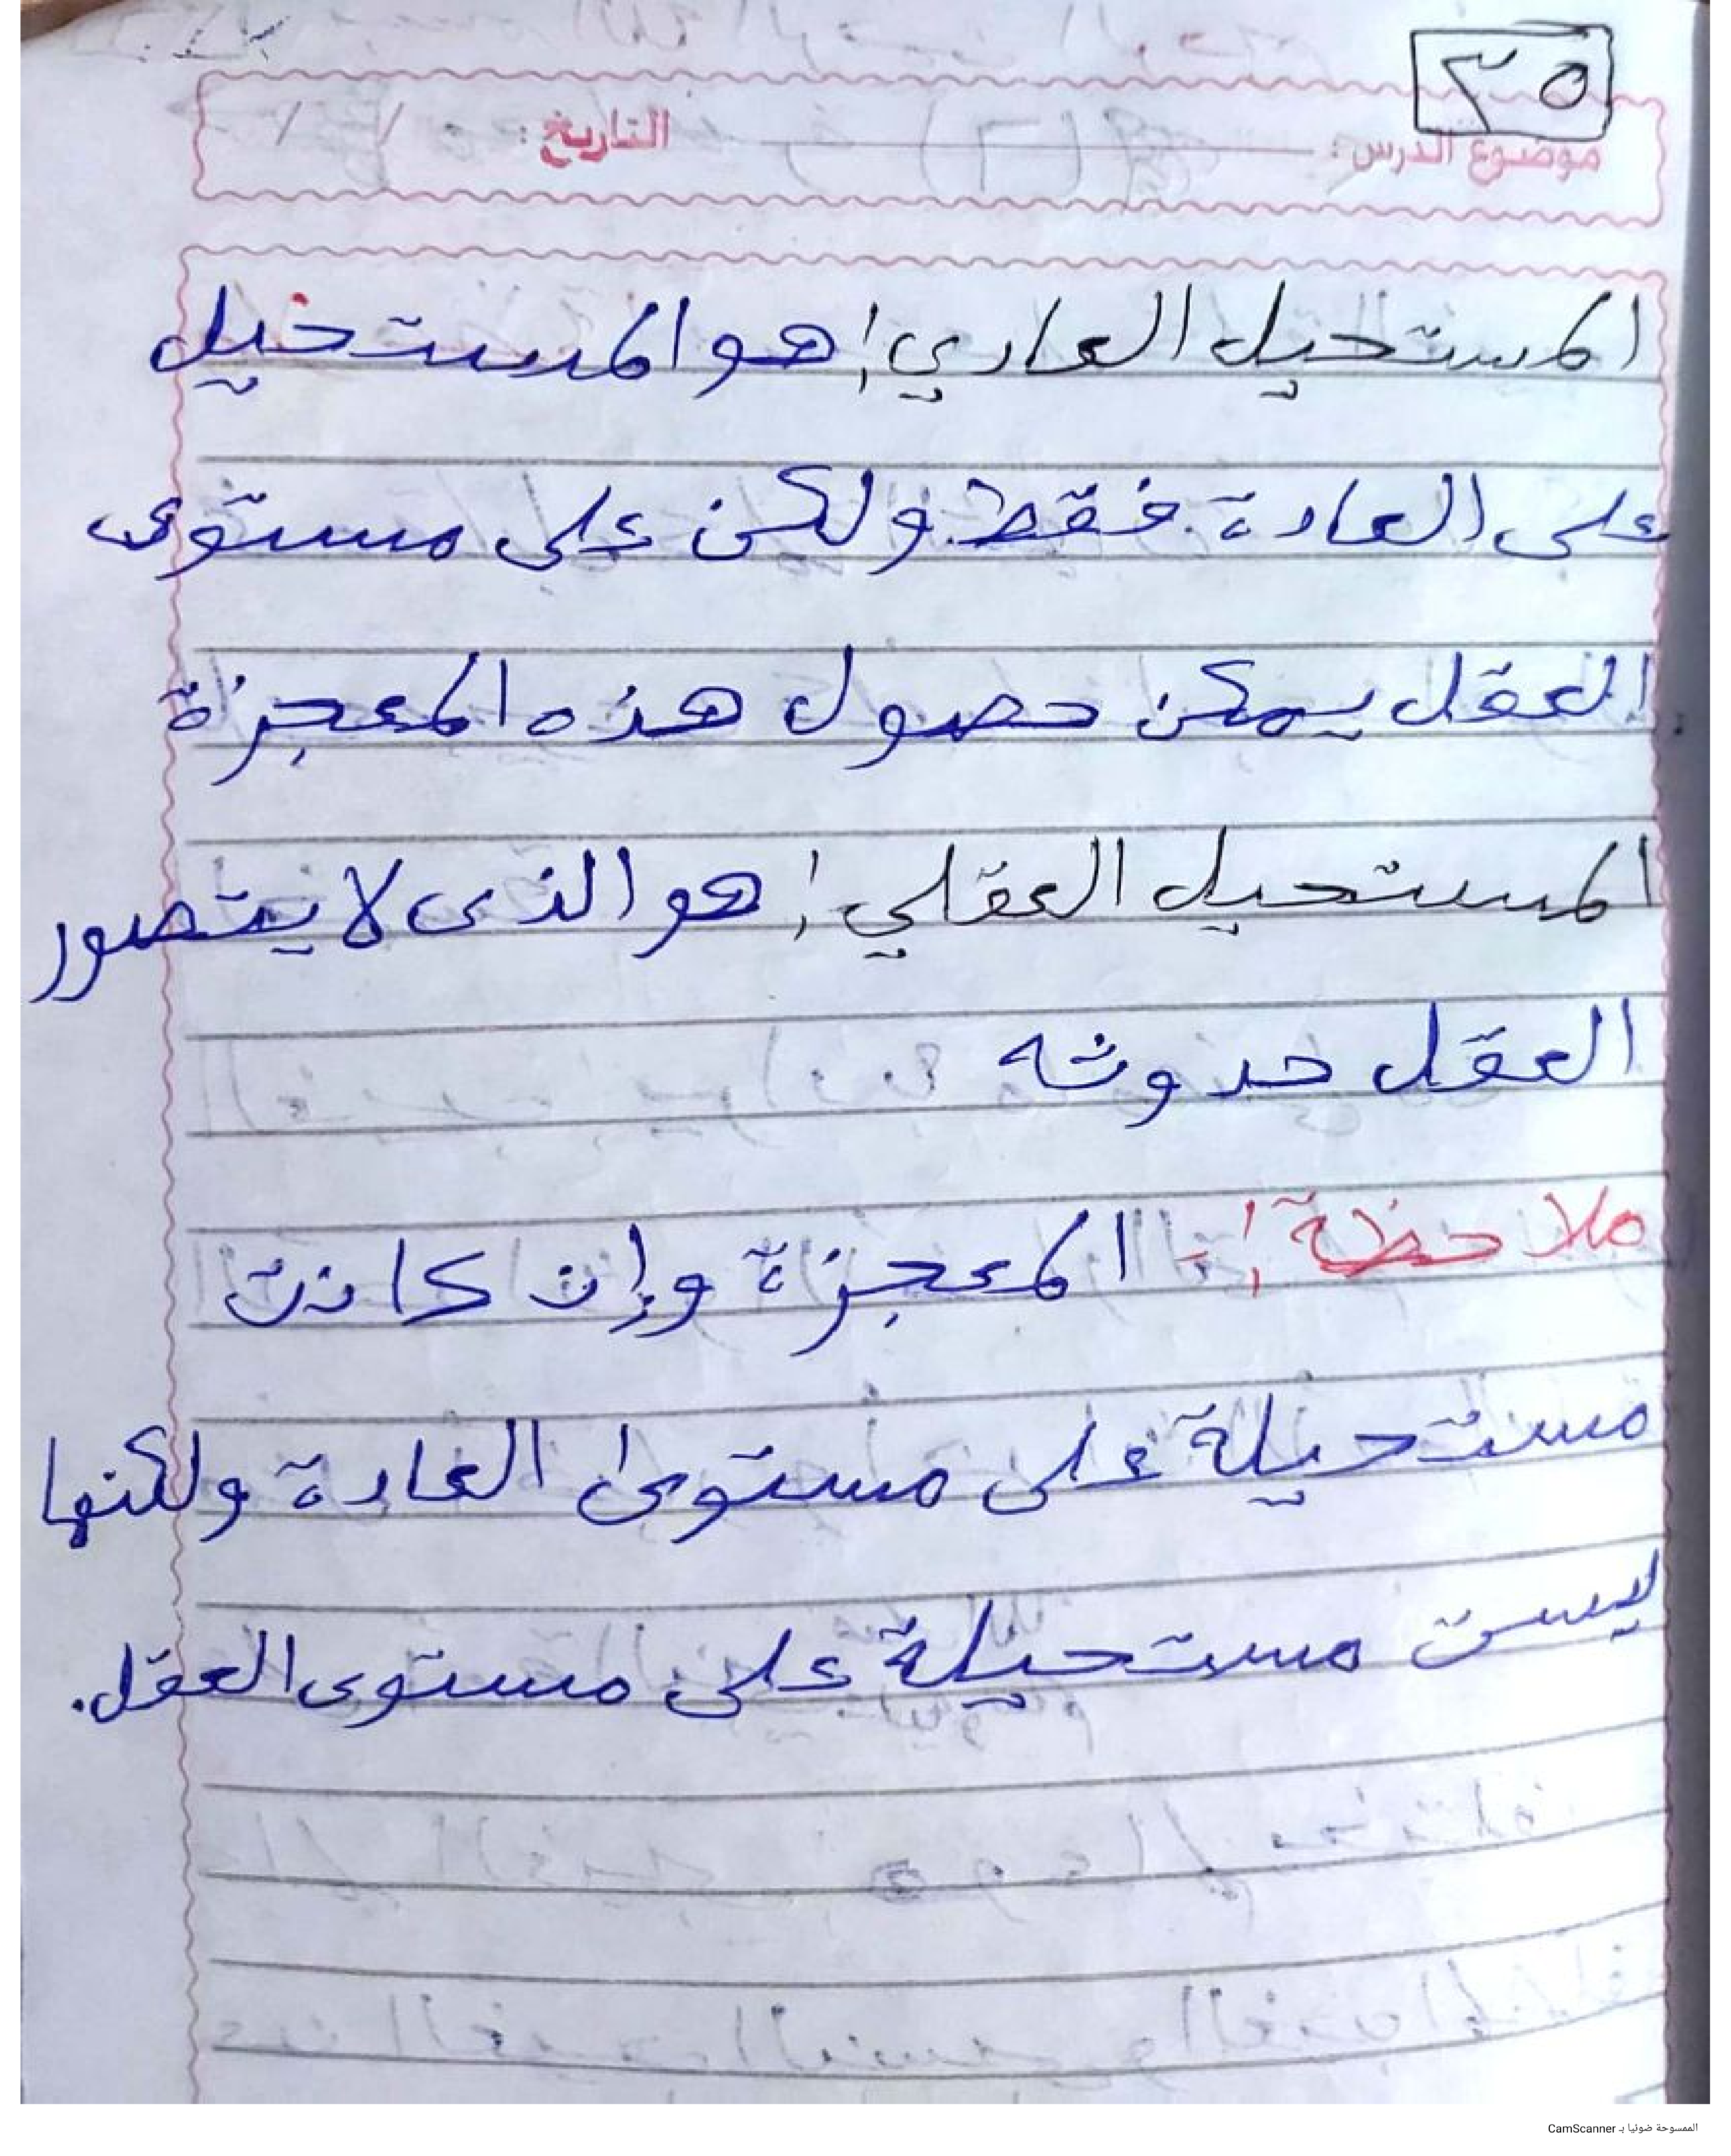 ٣٥
موضوع الدرس: التاريخ: / /
المستحيل العادي: هو المستحيل
على العادة فقط ولكن على مستوى
العقل يمكن حصول هذه المعجزة
المستحيل العقلي: هو الذى لا يتصور
العقل حدوثه
ملاحظة:- المعجزة وإن كانت
مستحيلة على مستوى العادة ولكنها
ليست مستحيلة على مستوى العقل.
الممسوحة ضوئيا بـ CamScanner